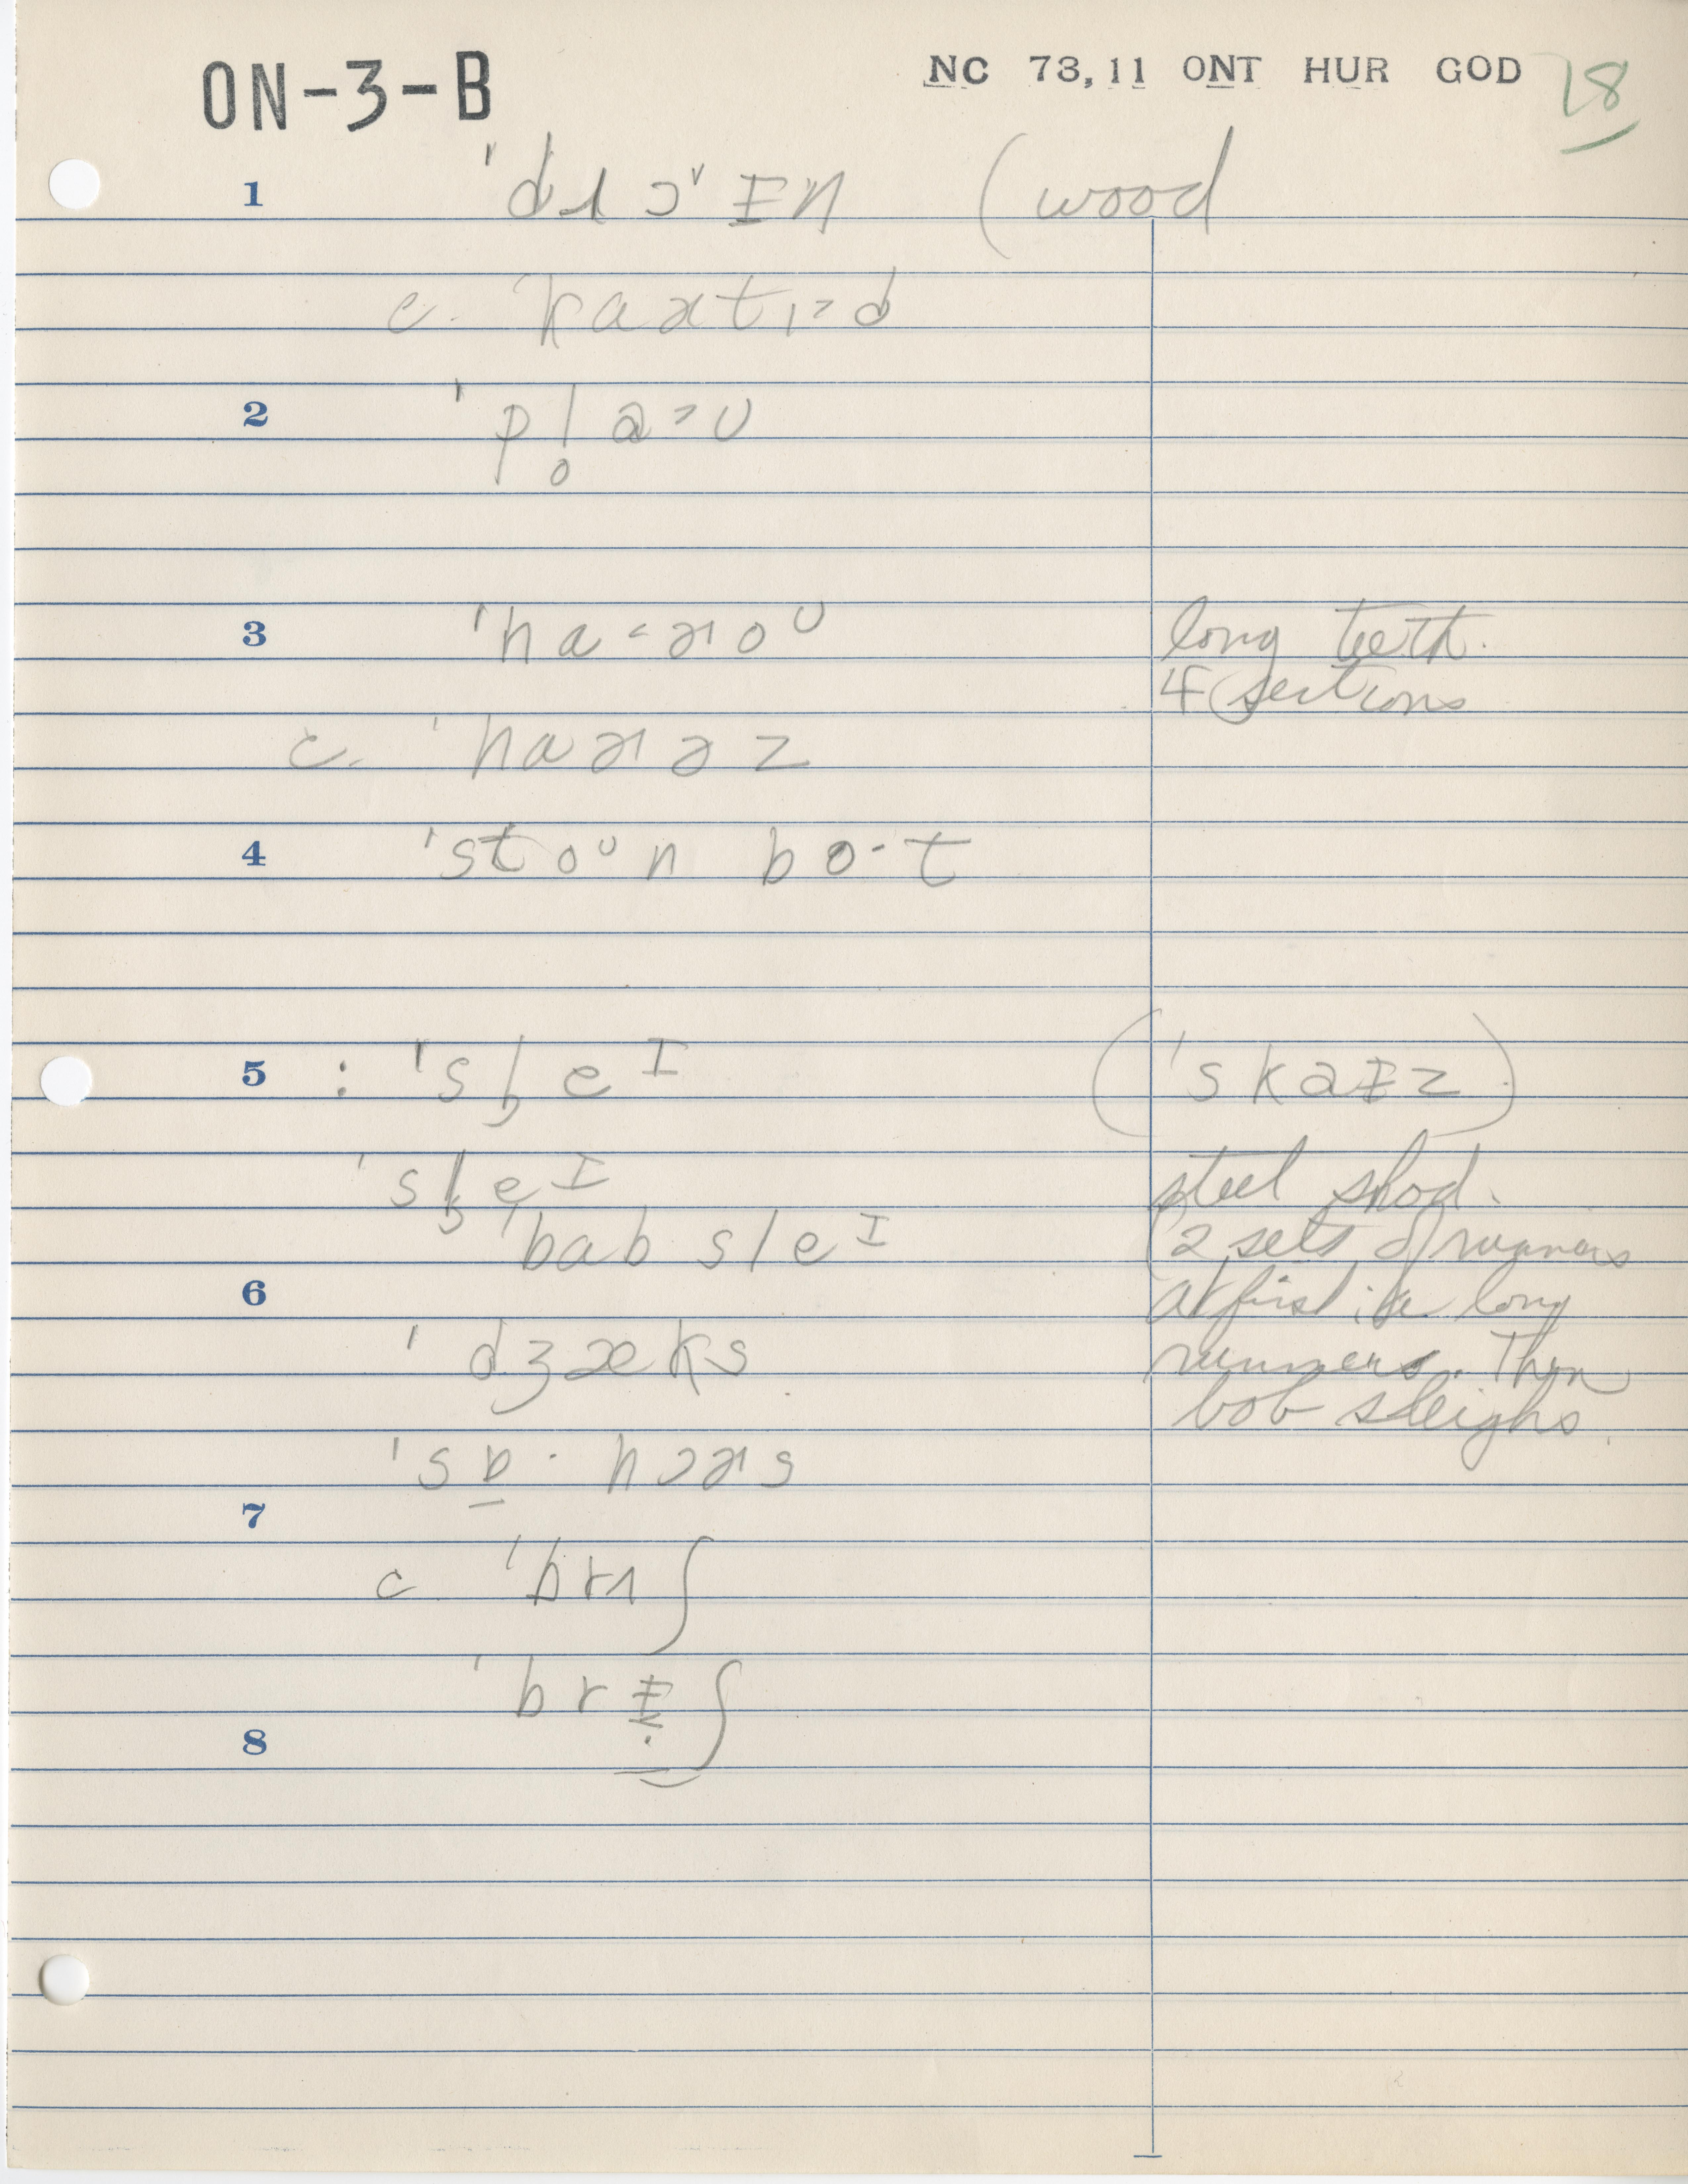 ON-3-B NC 73,11 ONT HUR GOD 28
1 (wood
2 ˈpl̥a˃ʊ
3 ˈha˂ɹoᶷ long teeth.
4 sections
c. ˈhaɹəz
4 ˈstoᶷn bo·t
5 : ˈsl̥eᴵ (ˈskaɪz)
ˈsl̥eᴵ steel shod.
ˈbab sleᴵ 2 sets of runners
6 at first long
ˈdʒæks runners. Then
bob sleighs.
ˈsɒ̱· hɔɚs
7
c ˈbrɪʃ
ˈbrɪʃ
8